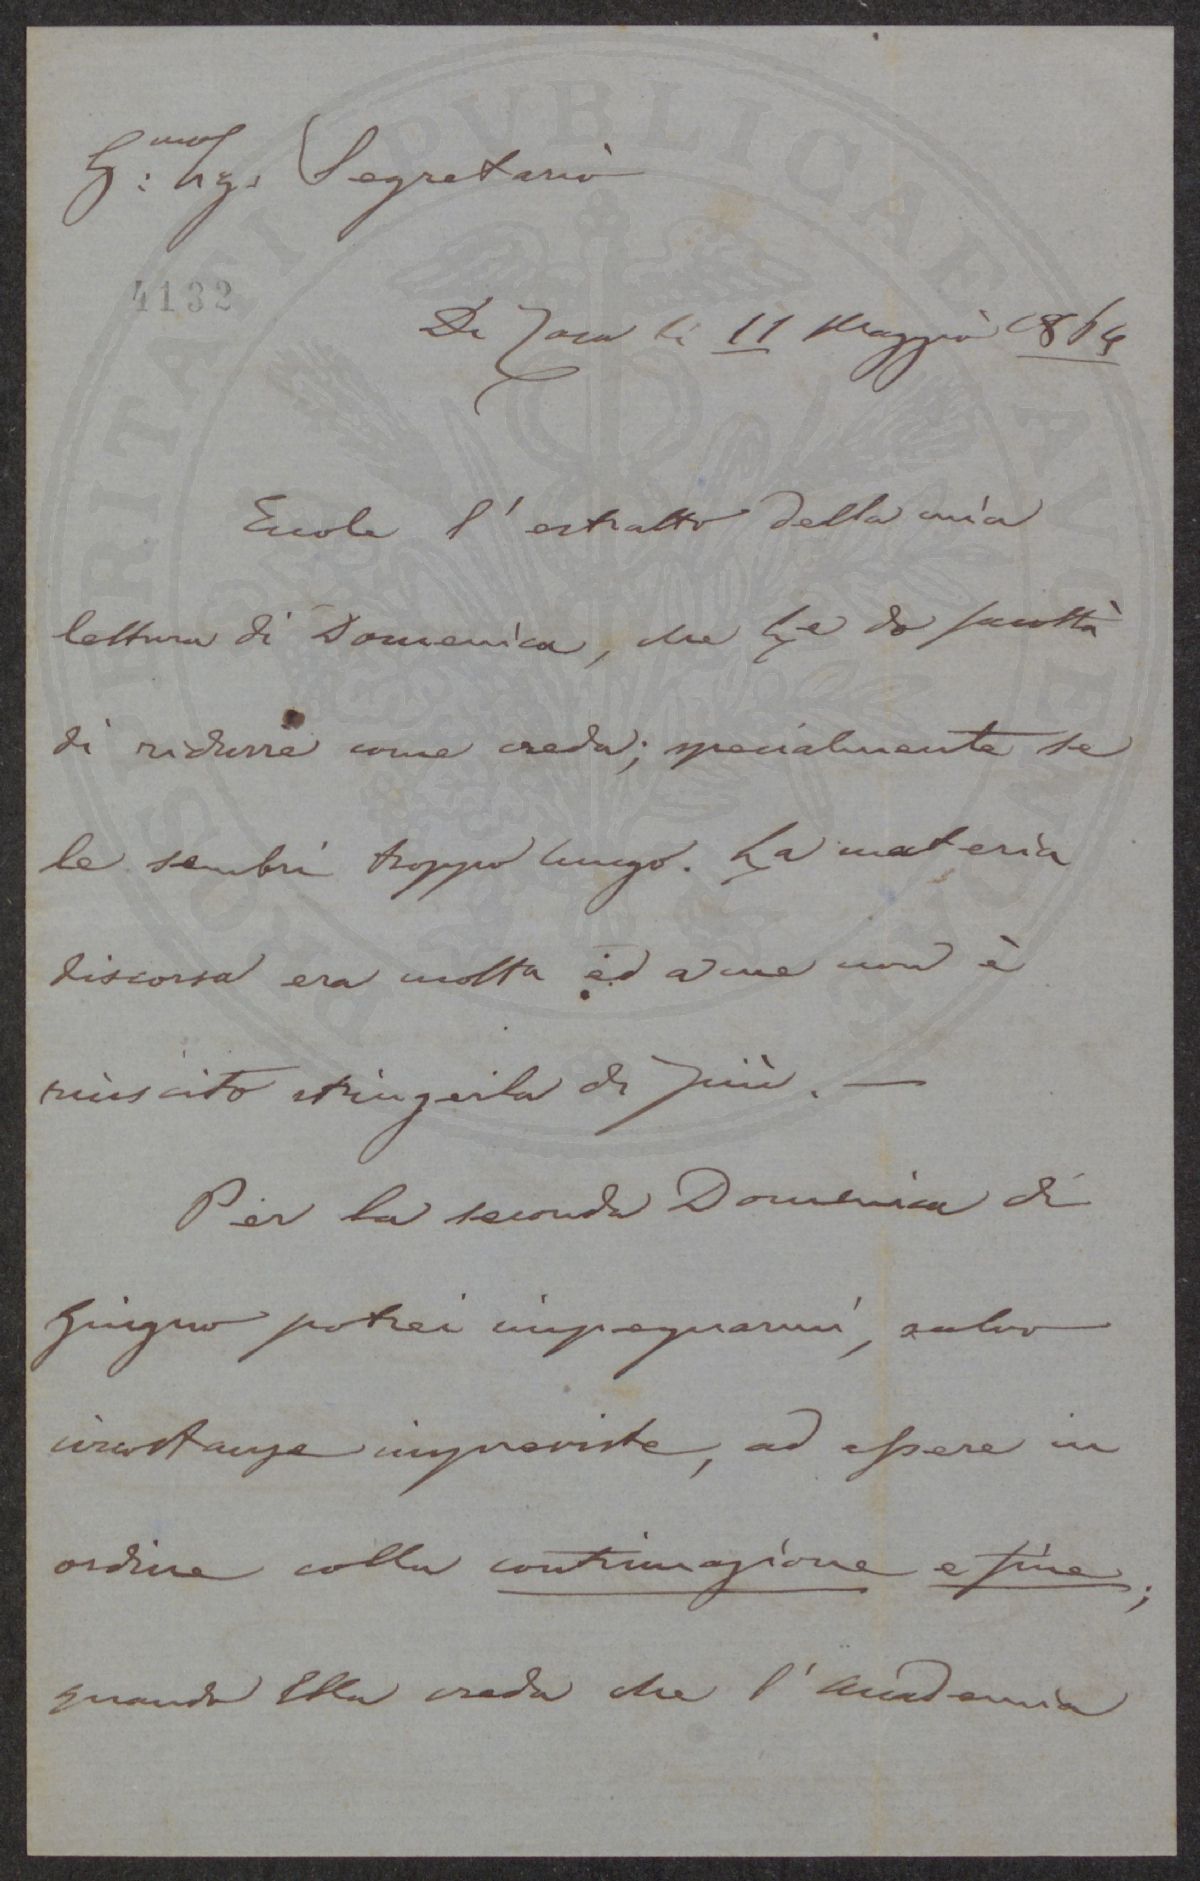 G:mo Sig. Segretario
4132
Di Casa li 11 Maggio 1864
Eccole l'estratto della mia
lettura di Domenica, che Le do facoltà
di ridurre come creda; specialmente se
le sembri troppo lungo. La materia
discorsa era molta ed a me non è
riuscito stringerla di più. —
Per la seconda Domenica di
Giugno potrei impegnarmi, salvo
circostanze impreviste, ad essere in
ordine colla continuazione e fine;
quando Ella creda che l'Accademia
PROSPERITATI PUBLICAE AVGENDAE